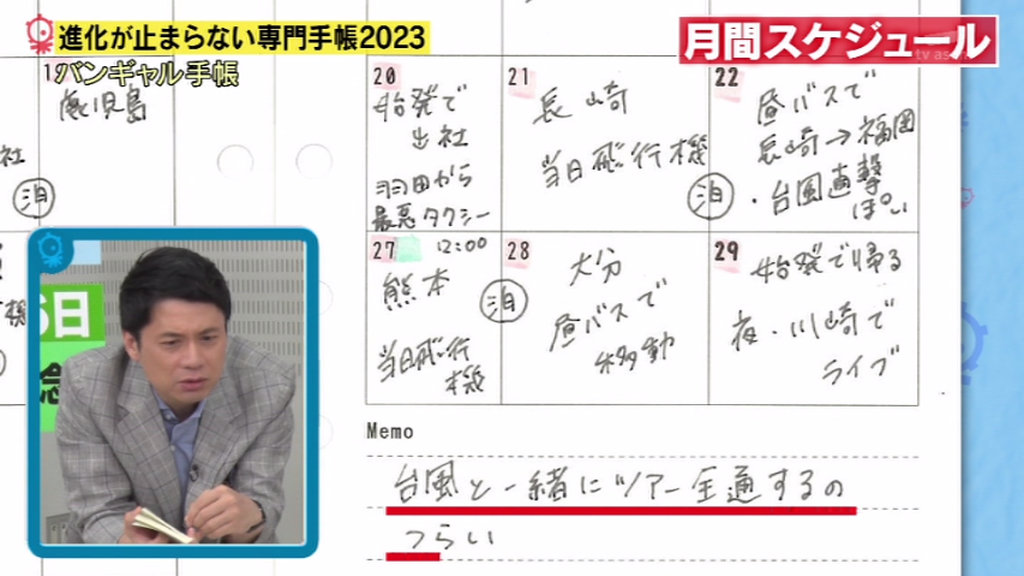 進化が止まらない専門手帳2023
バンギャル手帳
月間スケジュール
tv asahi
鹿児島
社
泊
20
始発で
出社
羽田から
最悪タクシー
21
長崎
当日飛行機
泊
22
昼バスで
長崎→福岡
・台風直撃
ぽい
27
12:00
熊本
当日飛行
機
泊
28
大分
昼バスで
移動
29
始発で帰る
夜・川崎で
ライブ
機
6日
念
Memo
台風と一緒にツアー全通するの
つらい